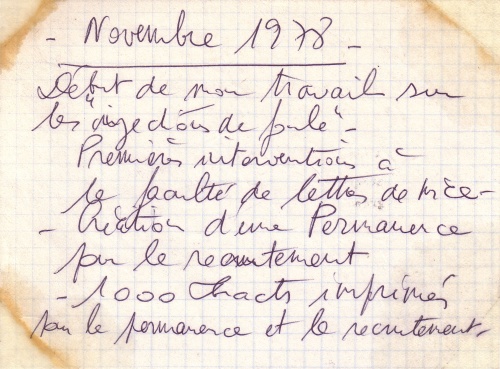 - Novembre 1978 -
Début de mon travail sur
les "injections de foule" -
Premières interventions à
la faculté de lettres de Nice -
- Création d'une Permanence
pour le recrutement
- 1000 tracts imprimés
pour la permanence et le recrutement -